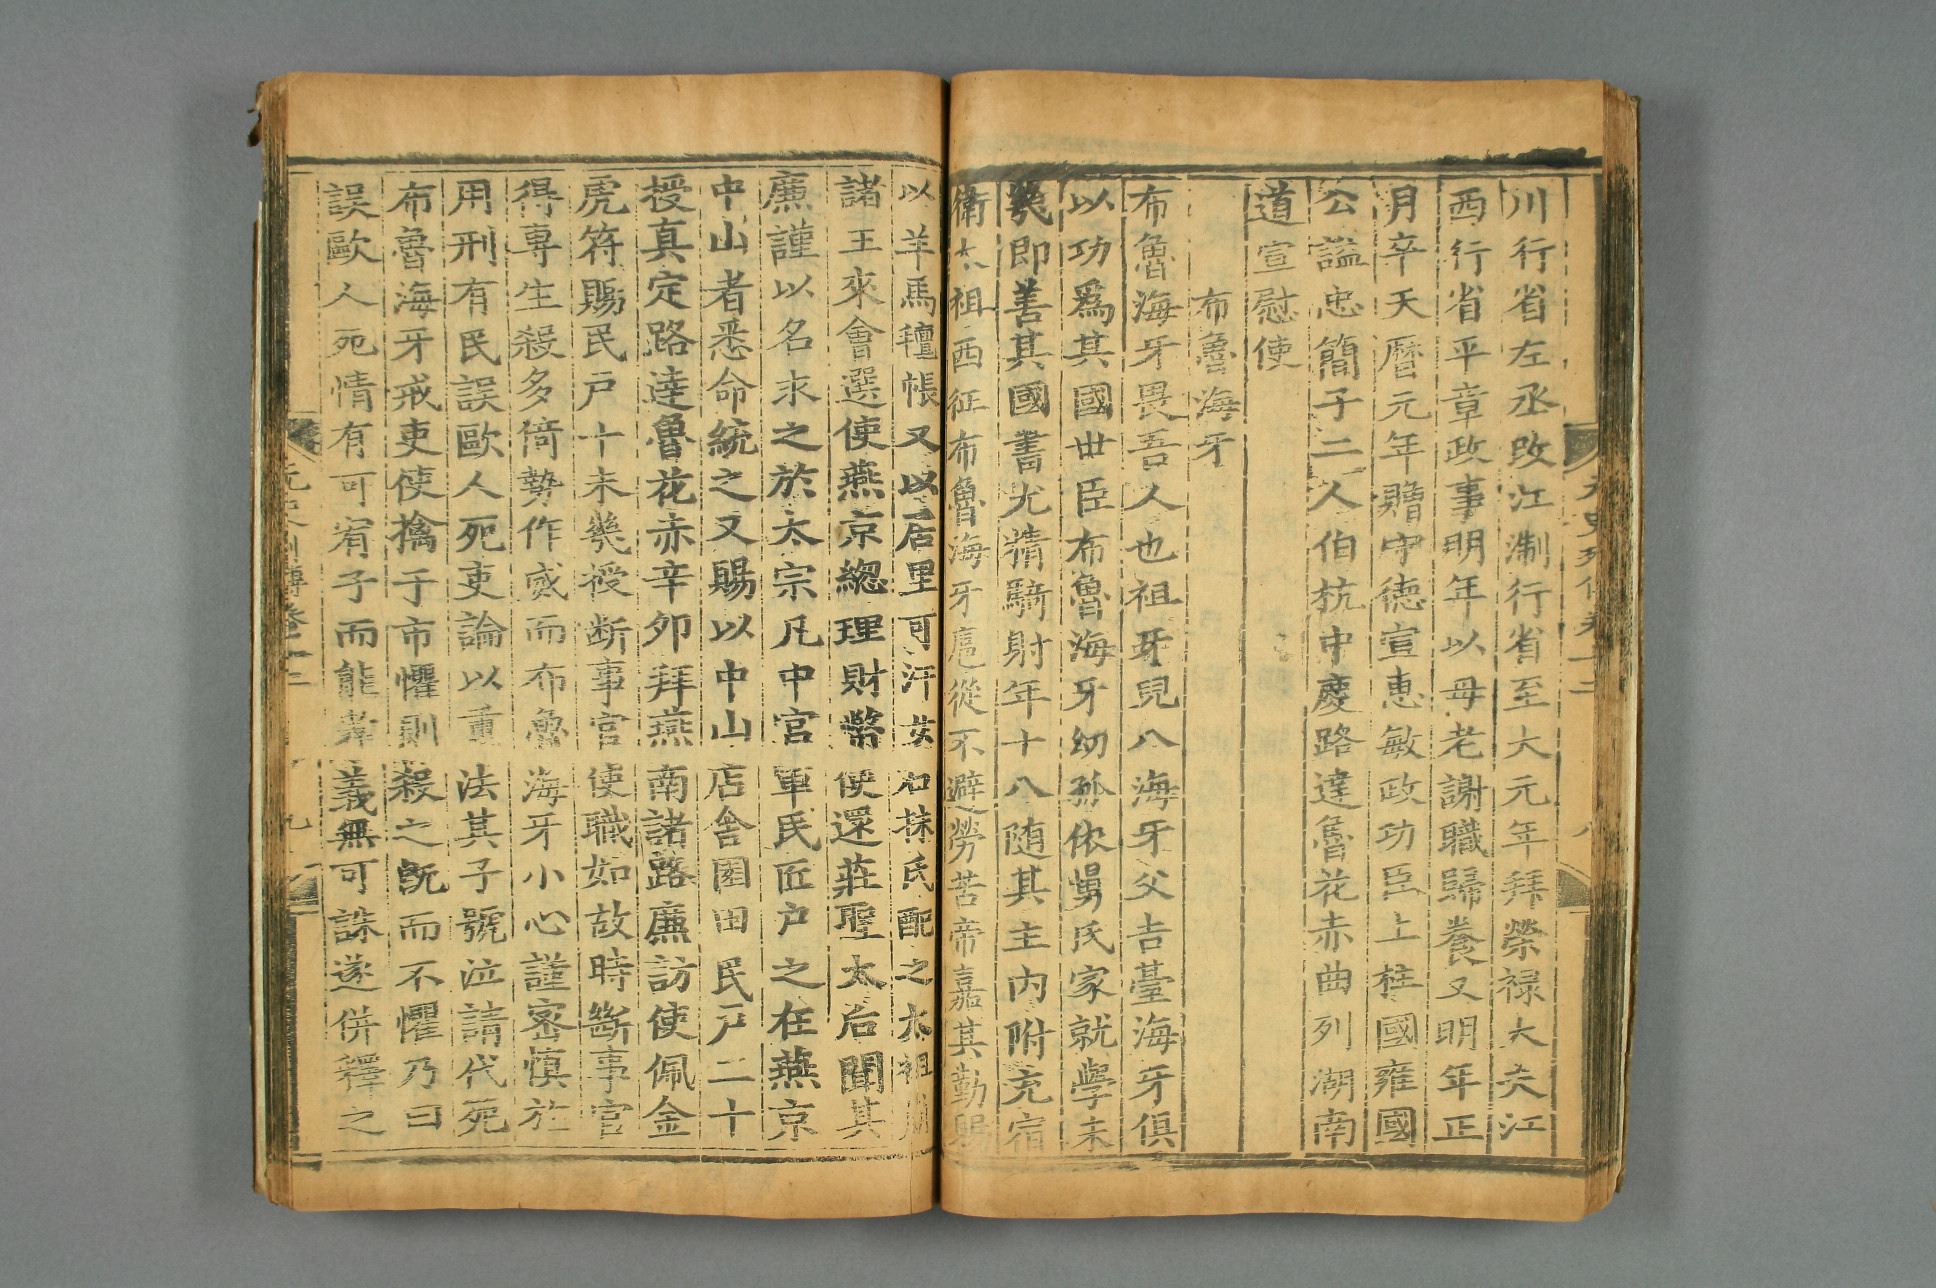 川行省左丞改江淛行省至大元年拜榮禄大夫江
西行省平章政事明年以母老謝職歸養又明年正
月卒天曆元年贈守德宣惠敏政功臣上柱國雍國
公諡忠簡子二人伯杭中慶路達魯花赤曲列湖南
道宣慰使
布魯海牙
布魯海牙畏吾人也祖牙兒八海牙父吉臺海牙俱
以功爲其國世臣布魯海牙幼孤依舅氏家就學未
幾即善其國書尤精騎射年十八随其主内附充宿
衛太祖西征布魯海牙扈從不避勞苦帝嘉其勤賜
以羊馬氊帳又以居里可汗女石抹氏配之太祖崩
諸王來會選使燕京總理財幣使還莊聖太后聞其
廉謹以名求之於太宗凡中宮軍民匠户之在燕京
中山者悉命統之又賜以中山店舍園田民戸二十
授真定路達魯花赤辛卯拜燕南諸路廉訪使佩金
虎符賜民户十未幾授断事官使職如故時斷事官
得専生殺多倚勢作威而布魯海牙小心謹密慎於
用刑有民誤歐人死吏論以重法其子號泣請代死
布魯海牙戒吏使擒于市懼則殺之旣而不懼乃曰
誤歐人死情有可宥子而能孝義無可誅遂併釋之
元史列傳卷十二
九
元史列傳卷十二
八